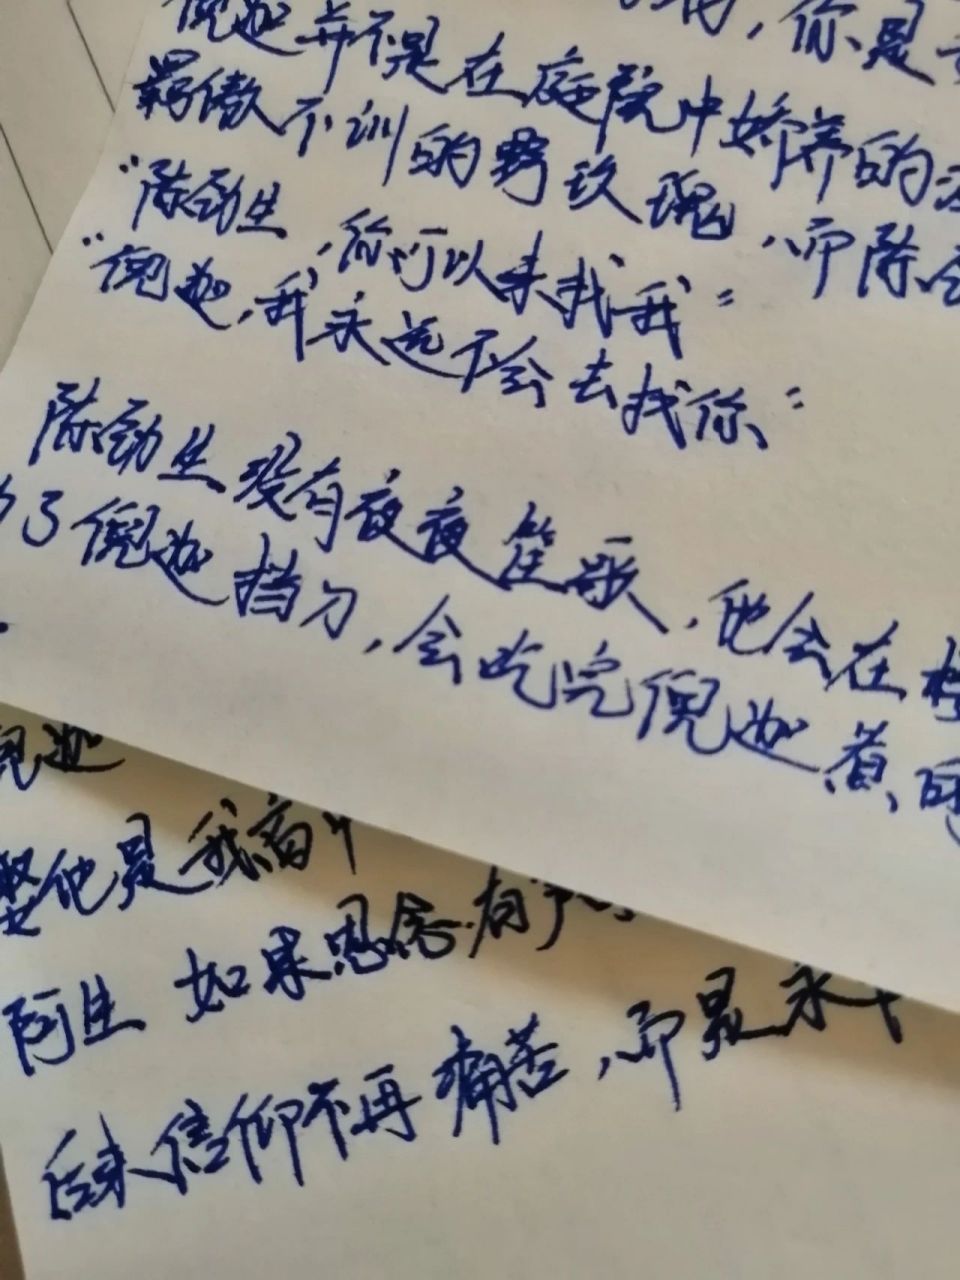 ，你是
倪迦并不是在庭院中娇养的
羁傲不训的野玫瑰，而陈
“陈劲生，你可以来找我”
“倪迦，我永远不会去找你”
陈劲生没有夜夜笙歌，他会在
了倪迦挡刀，会吃完倪迦煮
倪迦
他是我高中
阿生 如果思念有声
后来信仰不再痛苦，而是永